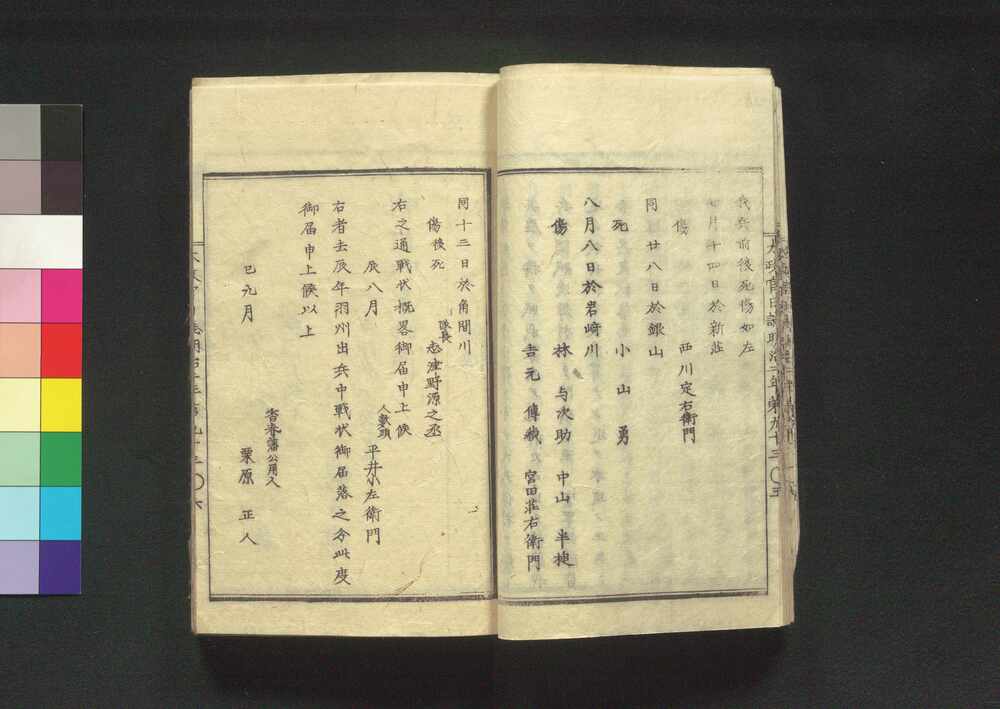 我兵前後死傷如左
七月十四日於新荘
傷 西川定右衛門
同廿八日於銀山
死 小山勇
八月八日於岩﨑川
傷 林与次助 中山半捷
吉元傳蔵 宮田荘右衛門
太政官日誌明治二年第九十三 〇五
同十三日於角間川
傷後死 隊長 志津野源之丞
右之通戦状概畧御届申上候
辰八月 人数頭 平井小左衛門
右者去辰年羽州出兵中戦状御届落之分此度
御届申上候以上
巳九月
香春藩公用人
栗原正人